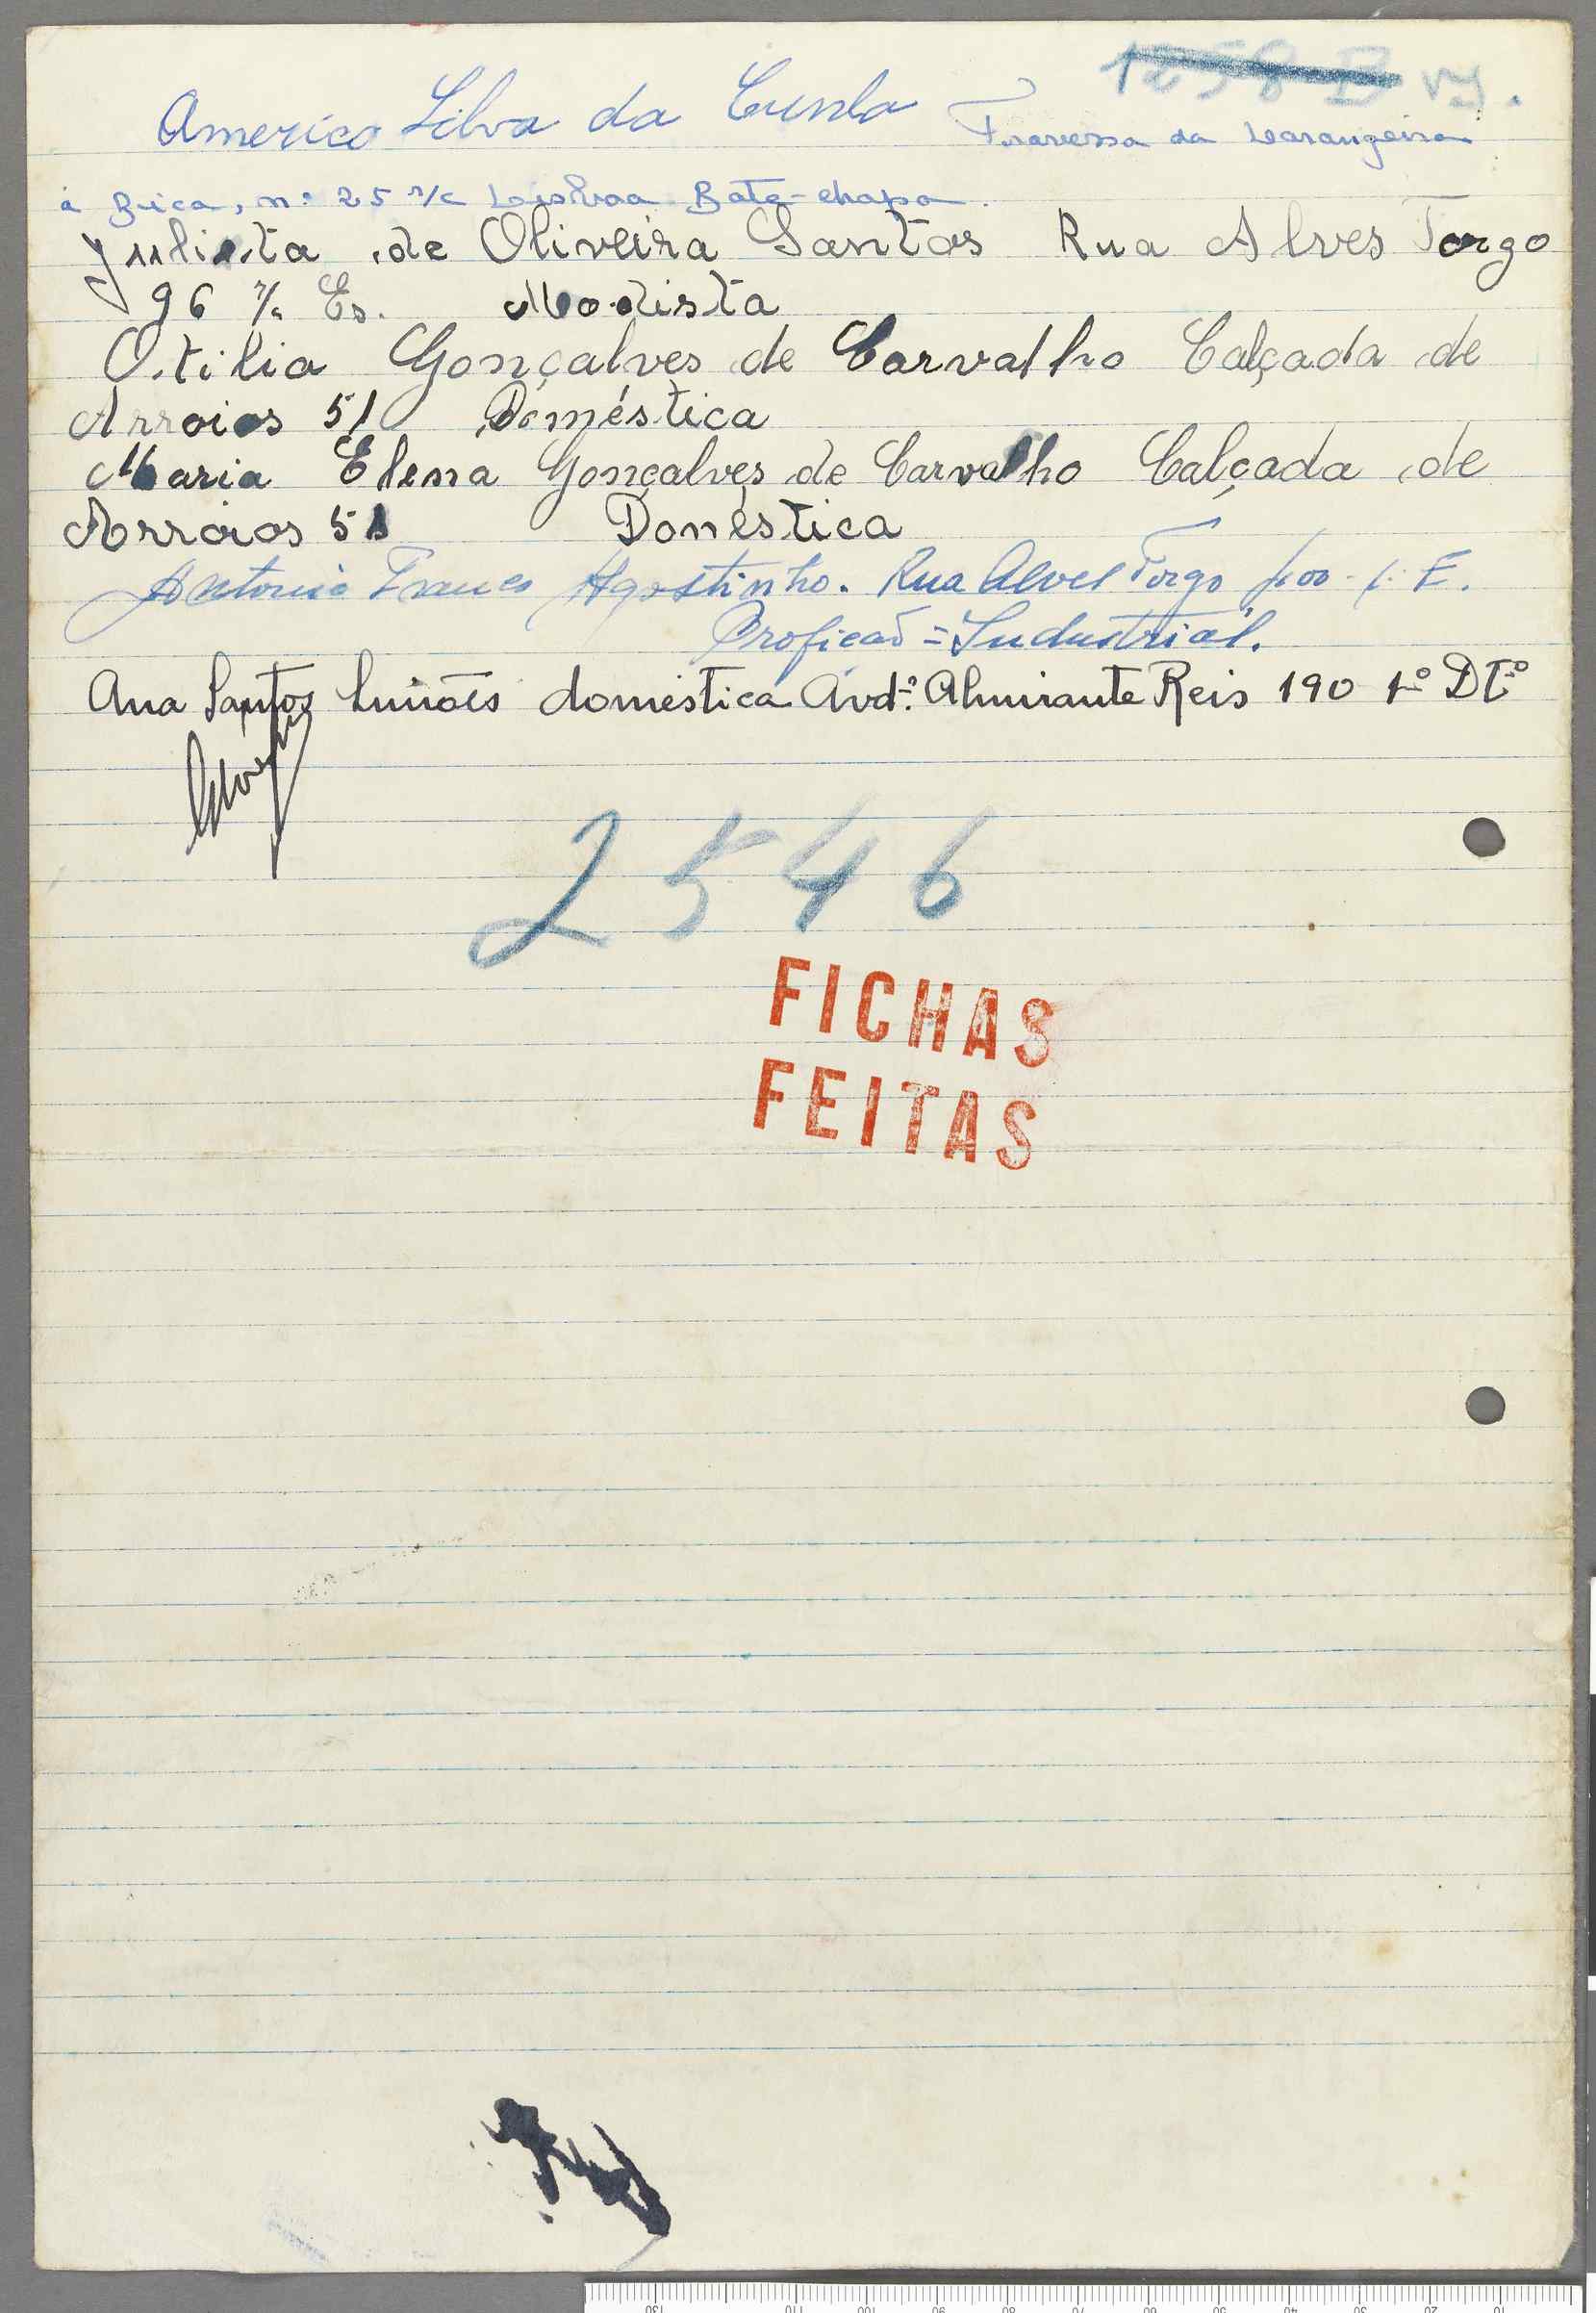 1258-B
Americo Silva da Cunha Travessa da Larangeira
á Bica, n.º 25 r/c Lisboa Bate-chapa.
Julieta de Oliveira Santos Rua Alves Torgo
96 r/c Es. Modista
Otilia Gonçalves de Carvalho Calçada de
Arroios 51 Doméstica
Maria Elena Gonçalves de Carvalho Calçada de
Arroios 51 Donéstica
Antonio Franco Agostinho. Rua Alves Torgo E.
Proficaõ = Industrial.
Ana Santos Simões doméstica Avd.ª Almirante Reis 190 1º Dtº
2546
FICHAS
FEITAS